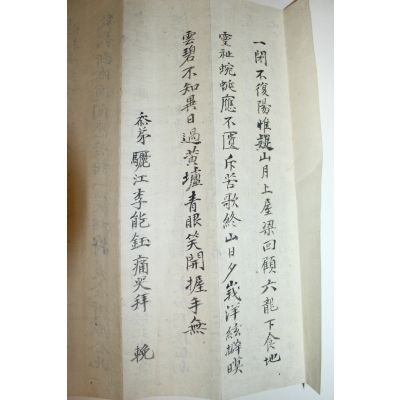 一閉不復陽惟疑山月上屋梁回顧六龍下食地
靈祉蜿蜒應不匱斥苦歌終山日夕峩洋絃擗暝
雲碧不知異日過黃壚青眼笑開握手無
忝弟驪江李能鈺痛哭拜 輓